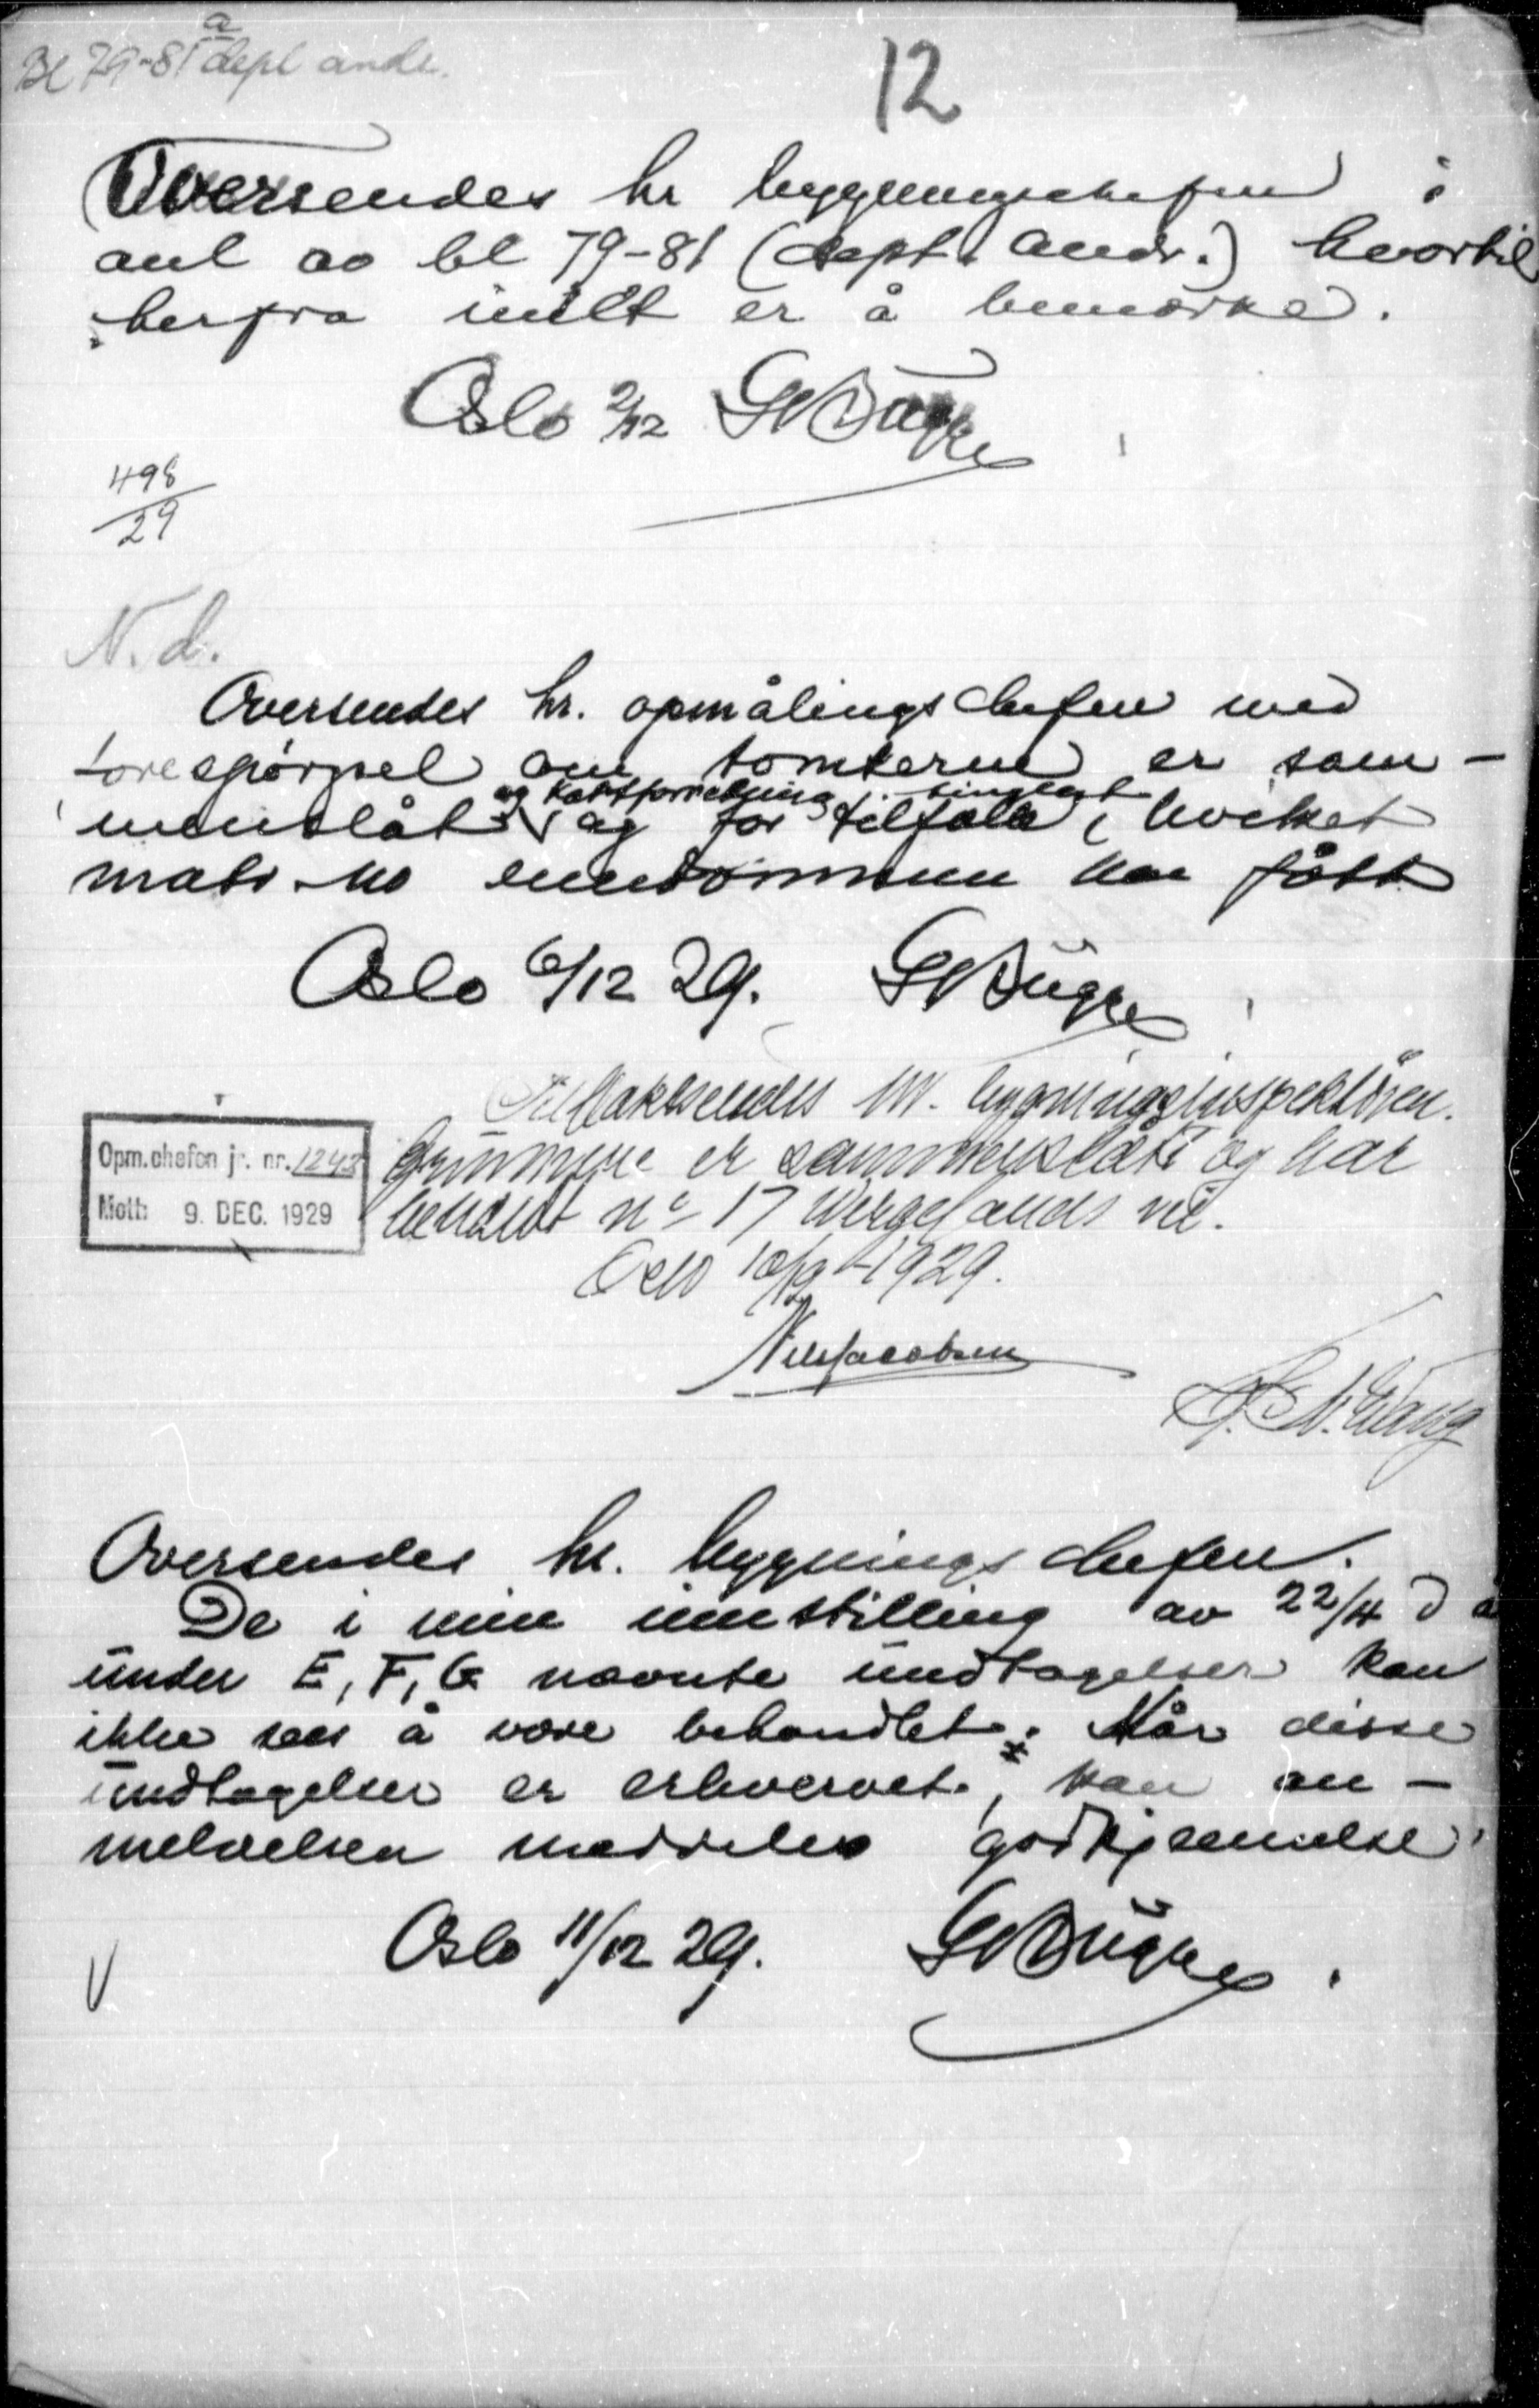 Bl 79-81 a dept andr.
12
Oversendes hr bygningschefen i
anl av bl 79-81 (dept. andr.) hvortil
herfra intet er å bemærke.
Oslo 2/12
498
29
N.d.
Oversendes hr. opmålingschefen med
forespørsel om tomterne er sam-
og kartforretning tinglyst
menslåt og for tilfælle, hvilket
matr. no eiendommen har fått
Oslo 6/12 29.
Tilbakesendes hr. bygningsinspektøren.
Opm.chefen jr. nr. 1243
Mott: 9. DEC. 1929
Grunnene er sammenslått og har
beholdt no 17 Wergelands vei.
Oslo 10/12 1929.
Nils Jacobsen
Oversendes hr. bygningschefen.
De i min innstilling av 22/4 d å
under E, F, G nævnte undtagelser kan
ikke sees å være behandlet. Når disse
undtagelser er erhvervet, kan an-
meldelsen meddeles godkjennelse.
Oslo 11/12 29.
V